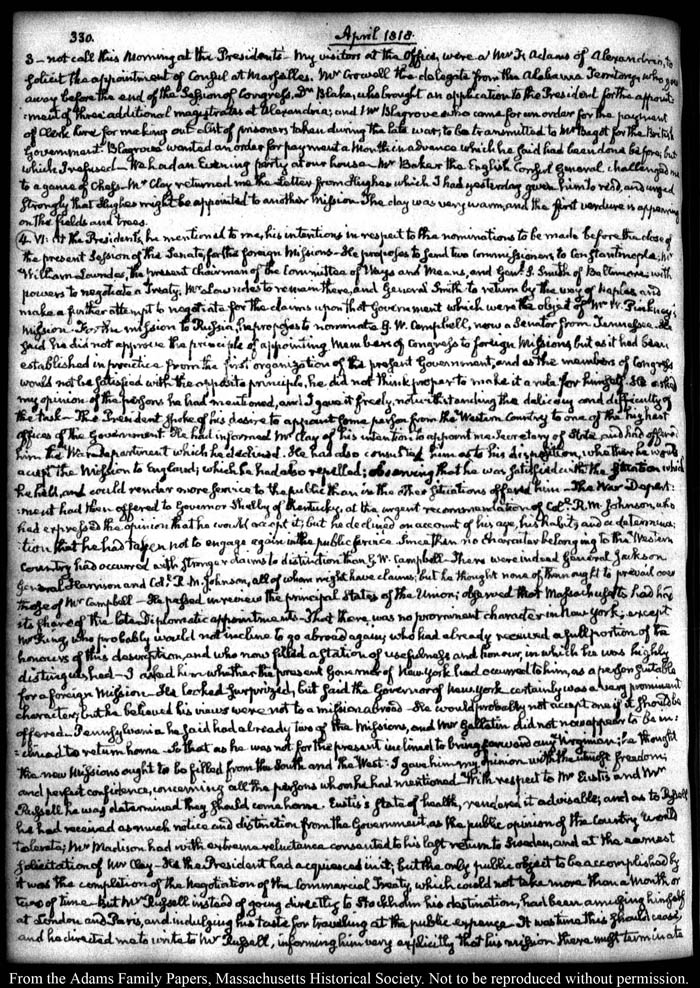 330. April 1818.
3 – not call this Morning at the Presidents – My visitors at the Office, were a Mr Adams of Alexandria, to
solicit the appointment of Consul at Marseilles. Mr Crowell the delegate from the Alabama Territory, who goes
away before the end of the Session of Congress. Dr Blake, who brought an application to the President for the appoint
:ment of three additional magistrates at Alexandria; and Mr Blagrove who came for an order for the payment
of Clerk hire for making out a list of prisoners taken during the late war; to be transmitted to Mr Bagot for the British
Government. Blagrove wanted an order for payment a Month in advance which he said had been done before; but
which I refused – We had an Evening party at our house – Mr Baker the English Consul General challenged me
to a game of Chess – Mr Clay returned me the Letter from Hughes which I had yesterday given him to read, and urged
strongly that Hughes might be appointed to another Mission – The day was very warm, and the first verdure is appearing
on the fields and trees.
4. VI: At the Presidents, he mentioned to me, his intentions in respect to the nominations to be made before the close of
the present Session of the Senate, for the foreign Missions – He proposes to send two Commissioners to Constantinople, Mr
William Lowndes, the present Chairman of the Committee of Ways and Means, and Genl S. Smith of Baltimore; with
powers to negotiate a Treaty. Mr Lowndes to remain there, and General Smith to return by the way of Naples, and
make a further attempt to negotiate for the claims upon that Government which were the object of Mr W. Pinkney's
mission. For the mission to Russia, he proposes to nominate G. W. Campbell, now a Senator from Tennessee. He
said he did not approve the principle of appointing Members of Congress to foreign Missions but as it had been
established in practice from the first organization of the present Government, and as the members of Congress
would not be satisfied with the opposite principle, he did not think proper to make it a rule for himself. He asked
my opinion of the persons he had mentioned, and I gave it freely, notwithstanding the delicacy and difficulty of
the task – The President spoke of his desire to appoint some person from the Western Country to one of the highest
offices of the Government. He had informed Mr Clay of his intention to appoint me Secretary of State and had offered
him the War department which he declined. He had also consulted him as to his disposition, whether he would
accept the Mission to England; which he had also repelled; observing that he was satisfied with the situation which
he held, and could render more service to the public than in the other situations offered him – The War Depart:
:ment had then offered to Governor Shelby of Kentucky; at the urgent recommendation of Col. R. M. Johnson, who
had expressed the opinion that he would accept it; but he declined on account of his age, his habits, and a determina:
:tion that he had taken not to engage again in the public service. Since then no character belonging to the Western
Country had occurred with stronger claims to distinction than G. W. Campbell – There were indeed General Jackson
General Harrison and Col. R. M. Johnson, all of whom might have claims; but he thought none of them ought to prevail over
those of Mr Campbell – He passed in review the principal States of the Union; observed that Massachusetts had had
its share of the late Diplomatic appointments – That there was no prominent character in New York; except
Mr King, who probably would not incline to go abroad again; who had already received a full portion of the
honours of this description, and who now filled a station of usefulness and honour, in which he was highly
distinguished – I asked him whether the present Governor of New York had occurred to him, as a person suitable
for a foreign Mission – He looked surprized, but said the Governor of New York certainly was a very prominent
character; but he believed his views were not to a mission abroad – He would probably not accept one if it should be
offered – Pennsylvania he said had already two of the Missions, and Mr Gallatin did not now appear to be in:
:clined to return home – So that as he was not for the present inclined to bring forward any Virginian; he thought
the new Missions ought to be filled from the South and the West. I gave him my opinion with the utmost freedom,
and perfect confidence, concerning all the persons whom he had mentioned – With respect to Mr Eustis and Mr
Russell he was determined they should come home. Eustis's state of health, rendered it advisable; and as to Russell
he had received as much notice and distinction from the Government, as the public opinion of the Country would
tolerate; Mr Madison had with extreme reluctance consented to his last return to Sweden, and at the earnest
solicitation of Mr Clay – He the President had acquiesced in it; but the only public object to be accomplished by
it was the completion of the Negotiation of the Commercial Treaty, which could not take more than a Month or
two of time – But Mr Russell instead of going directly to Stockholm his destination, had been amusing himself
at London and Paris, and indulging his taste for travelling at the public expence – It was time this should cease,
and he directed me to write to Mr Russell, informing him very explicitly that his mission there must terminate
From the Adams Family Papers, Massachusetts Historical Society. Not to be reproduced without permission.